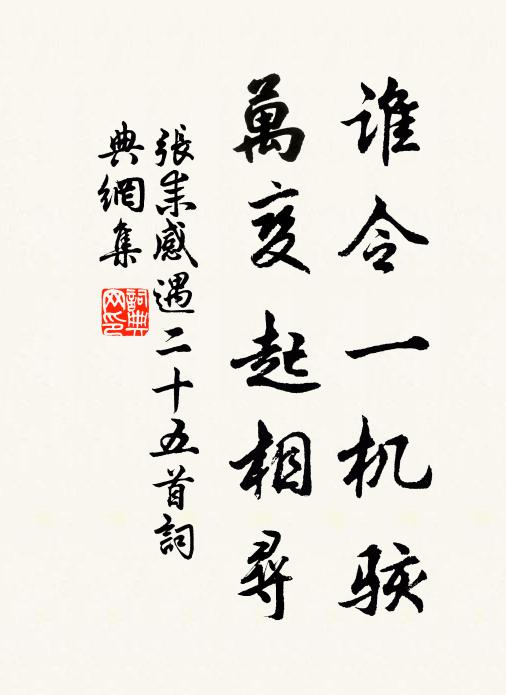 谁令一机骇
萬变起相尋
張耒感遇二十五首詞
典網集
詞典
网印